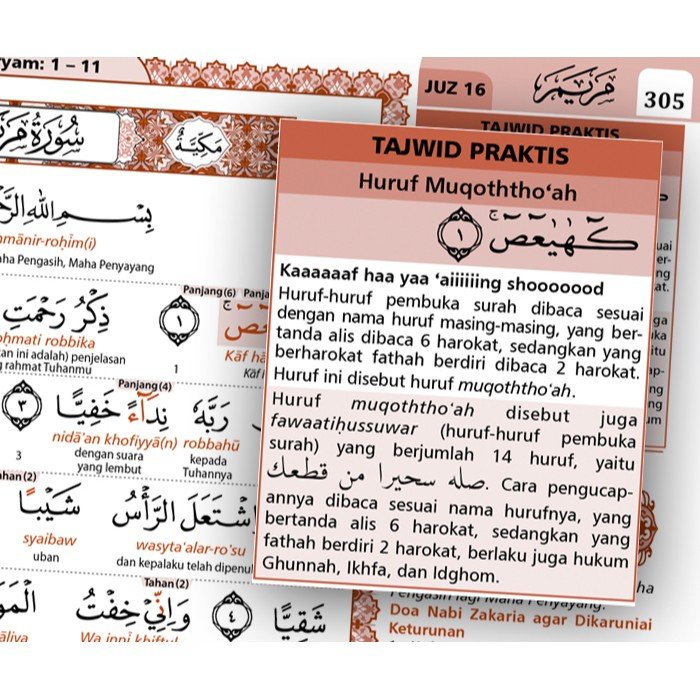 ryam: 1 – 11
JUZ 16
مَرْيَمَ
305
TAJWID PRAKTIS
مَكِيَّةٌ
TAJWID PRAKTIS
Huruf Muqoththo‘ah
كۤهٰيٰعۤصۤ ۚ ١
Kaaaaaaf haa yaa ‘aiiiiiing shooooood
Huruf-huruf pembuka surah dibaca sesuai
dengan nama huruf masing-masing, yang ber-
tanda alis dibaca 6 harokat, sedangkan yang
berharokat fathah berdiri dibaca 2 harokat.
Huruf ini disebut huruf muqoththo‘ah.
Huruf muqoththo‘ah disebut juga
fawaatiḥussuwar (huruf-huruf pembuka
surah) yang berjumlah 14 huruf, yaitu
صله سحيرا من قطعك. Cara pengucap-
annya dibaca sesuai nama hurufnya, yang
bertanda alis 6 harokat, sedangkan yang
fathah berdiri 2 harokat, berlaku juga hukum
Ghunnah, Ikhfa, dan Idghom.
mānir-roḥīm(i)
Pengasih, Maha Penyayang
Panjang(6)
ذِكْرُ رَحْمَتِ
١
ohmati robbika
Kāf
kan ini adalah) penjelasan
rahmat Tuhanmu
1
Panjang(4)
رَبَّهٗ نِدَاۤءً خَفِيًّا
٣
nidā'an khofiyyā(n) robbahū
dengan suara
yang lembut
kepada
Tuhannya
3
ahan(2)
اشْتَعَلَ الرَّأْسُ شَيْبًا
syaibaw
wasyta‘alar-ro'su
uban
dan kepalaku telah dipenu
Tahan(2)
شَقِيًّا ٤ وَاِنِّيْ خِفْتُ
Wa innī khiftul
Pengasih lagi Maha Penyayang.
Doa Nabi Zakaria agar Dikaruniai
Keturunan